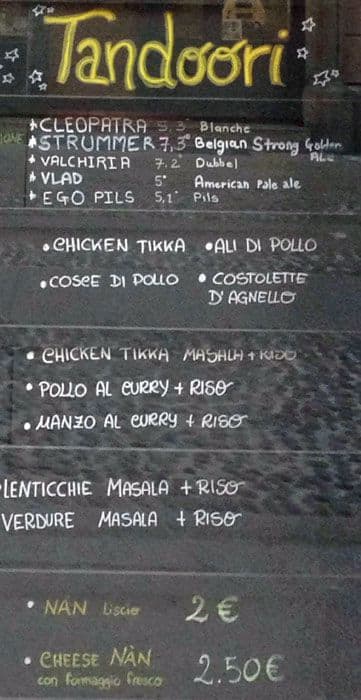 Tandoori
*CLEOPATRA 5,3° Blanche
*STRUMMER 7,3° Belgian Strong Golden Ale
*VALCHIRIA 7.2° Dubbel
*VLAD 5° American Pale ale
*EGO PILS 5,1° Pils
•CHICKEN TIKKA •ALI DI POLLO
•COSCE DI POLLO •COSTOLETTE
D'AGNELLO
•CHICKEN TIKKA MASALA + RISO
•POLLO AL CURRY + RISO
•MANZO AL CURRY + RISO
LENTICCHIE MASALA + RISO
VERDURE MASALA + RISO
•NÀN liscio 2€
•CHEESE NÀN 2.50€
con formaggio fresco